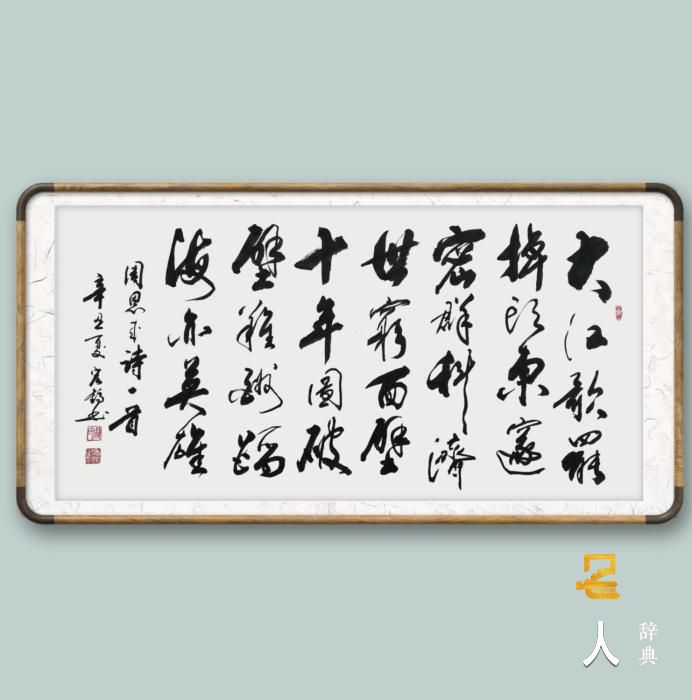 大江歌罷
掉頭東邃
密群科濟
世窮面壁
十年圖破
壁難酬蹈
海亦英雄
周恩来詩一首
辛丑夏
名人
辞典